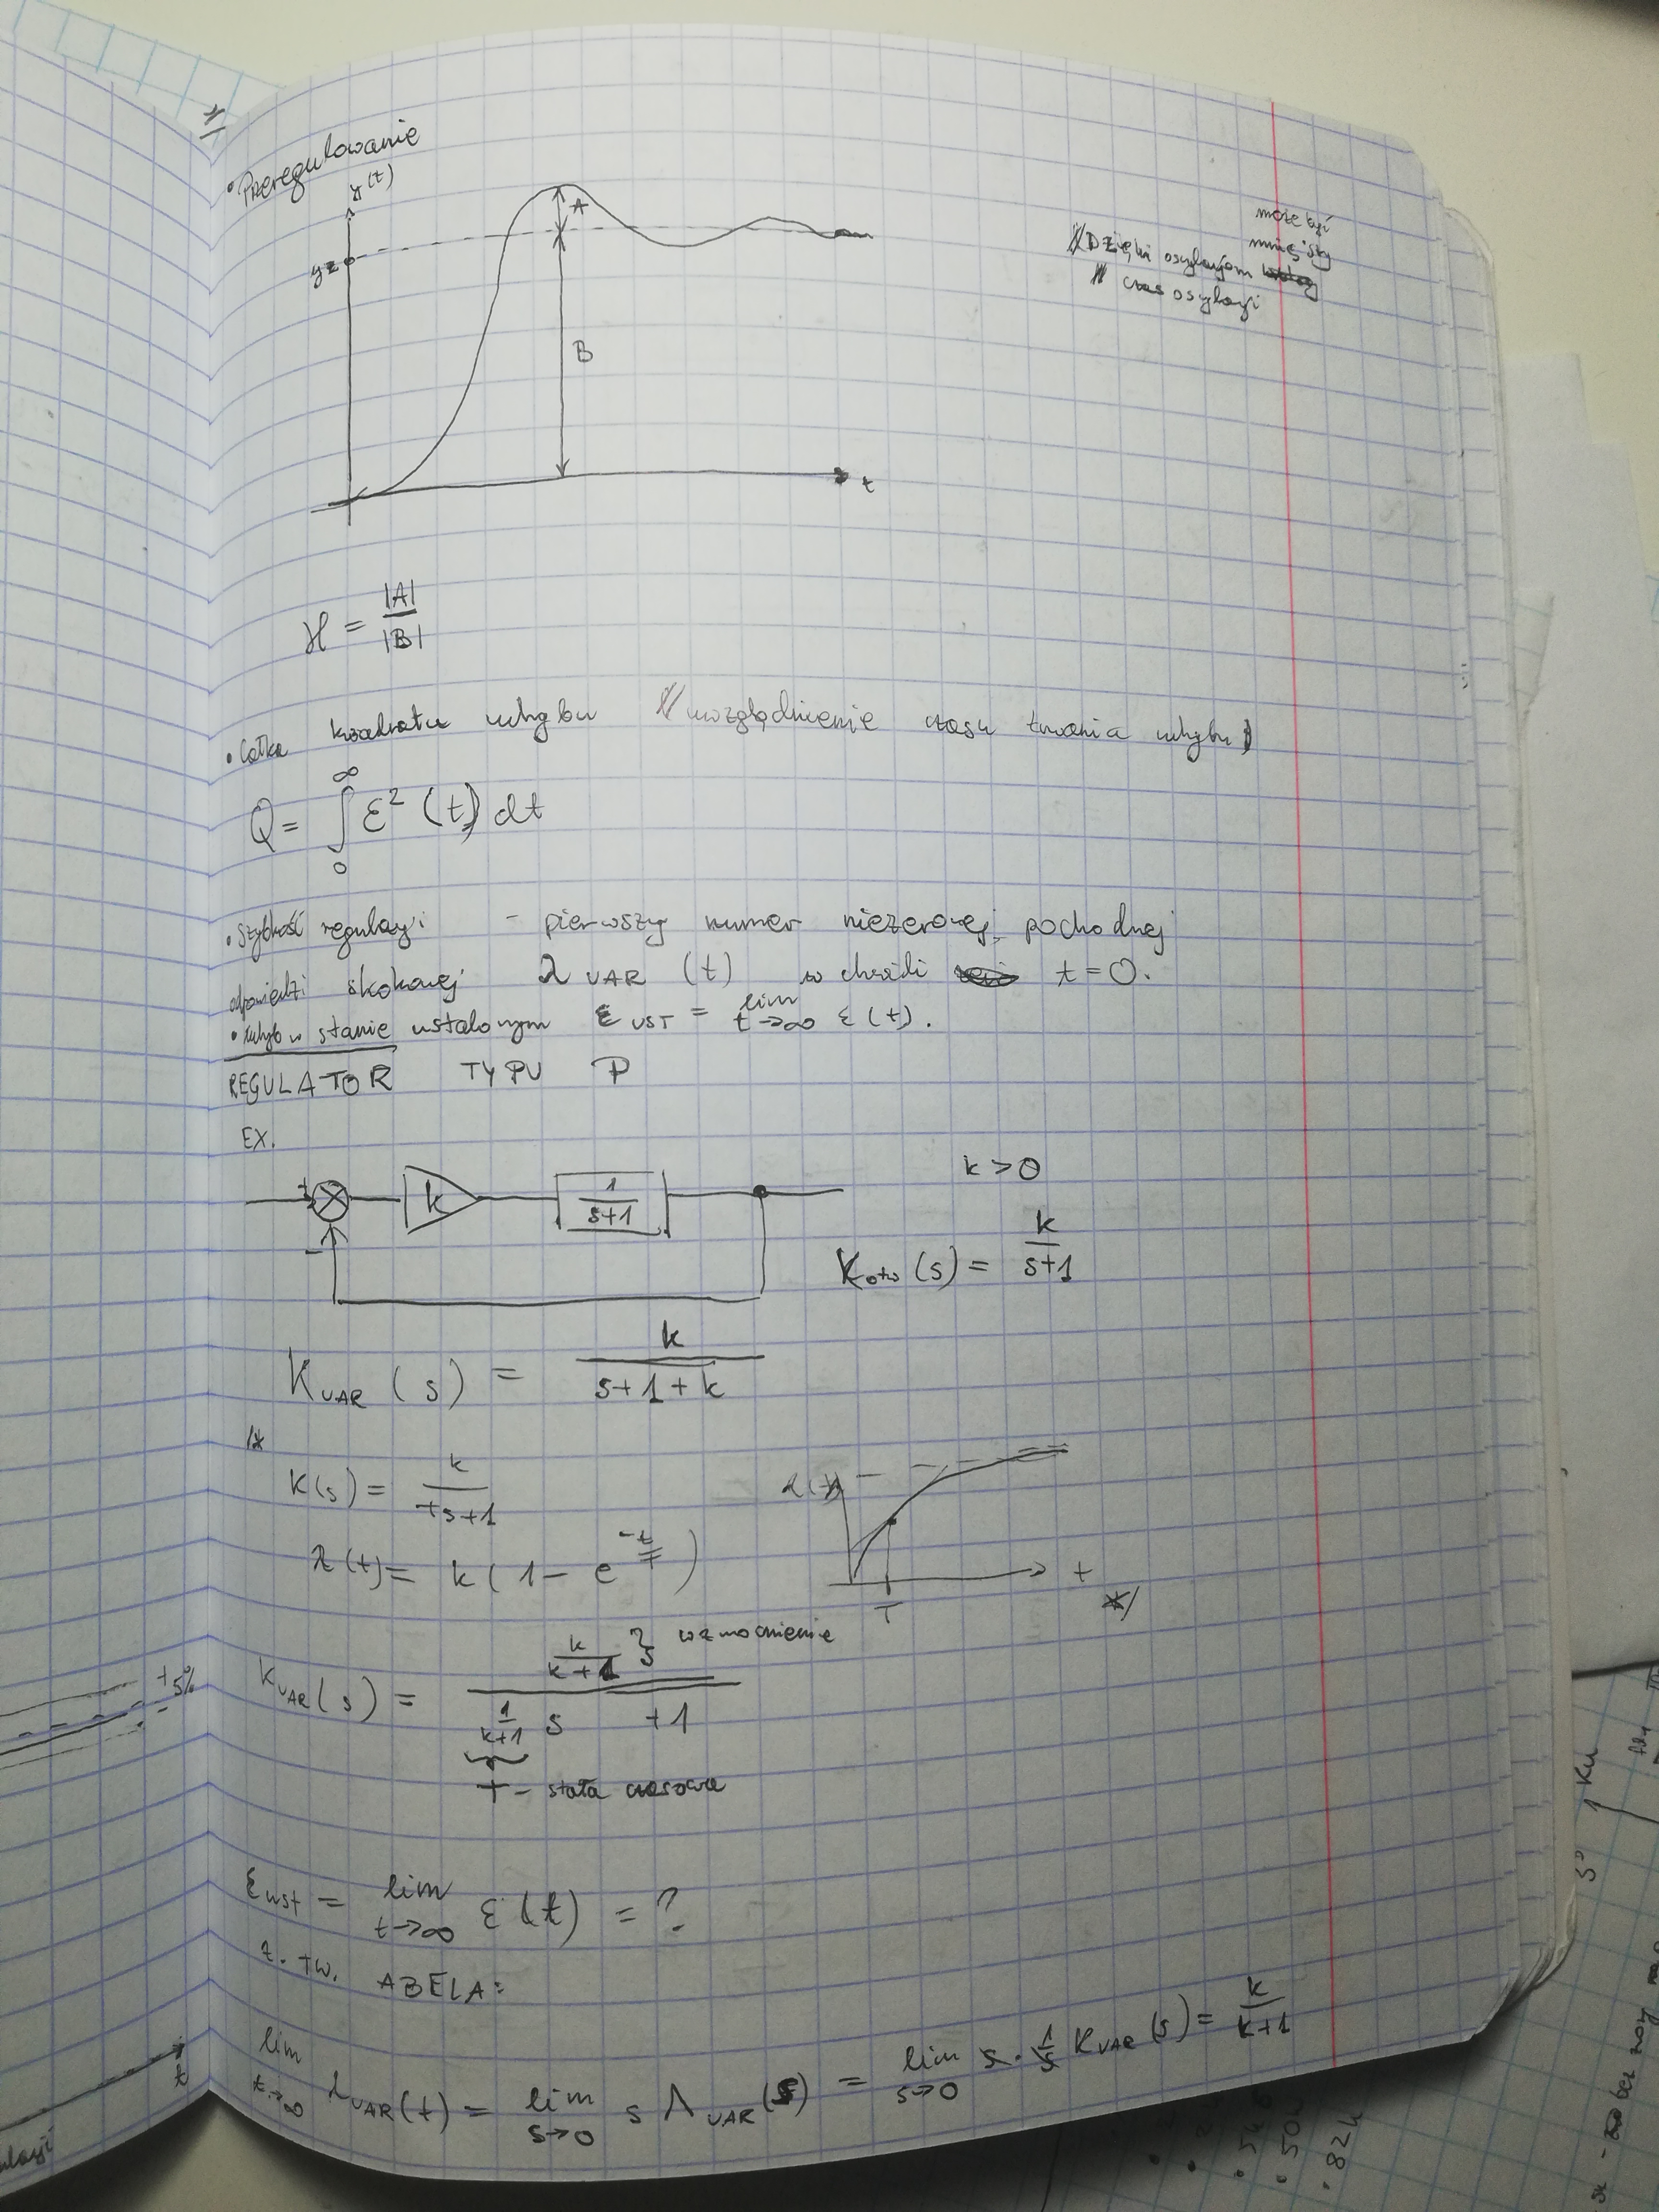 1/
• Przeregulowanie
y(t)
yz
A
B
t
może być
mniejszy
// Dzięki oscylacjom
// czas oscylacji
ℋ = |A| / |B|
• Całka kwadratu uchybu // uwzględnienie czasu trwania uchybu
Q = ∫₀^∞ ε² (t) dt
• Szybkość regulacji - pierwszy numer niezerowej pochodnej
odpowiedzi skokowej λ UAR (t) w chwili t = 0.
• uchyb w stanie ustalonym ε UST = lim t→∞ ε(t).
REGULATOR TYPU P
EX.
+ k 1/(s+1) k > 0
-
K otw (s) = k/(s+1)
K UAR (s) = k/(s+1+k)
/*
k(s) = k/(Ts+1)
λ(t) = k(1 - e^(-t/T))
λ(t)
t
T
*/
k UAR (s) = (k/(k+1)) / ((1/(k+1)) s +1) } wzmocnienie
T - stała czasowa
+5%
ε ust = lim t→∞ ε(t) = ?
z. tw. ABELA:
lim t→∞ λ UAR (t) = lim s→0 s Λ UAR (s) = lim s→0 s · 1/s K UAR (s) = k/(k+1)
t
1 Ku
bez
• 50
• 82k